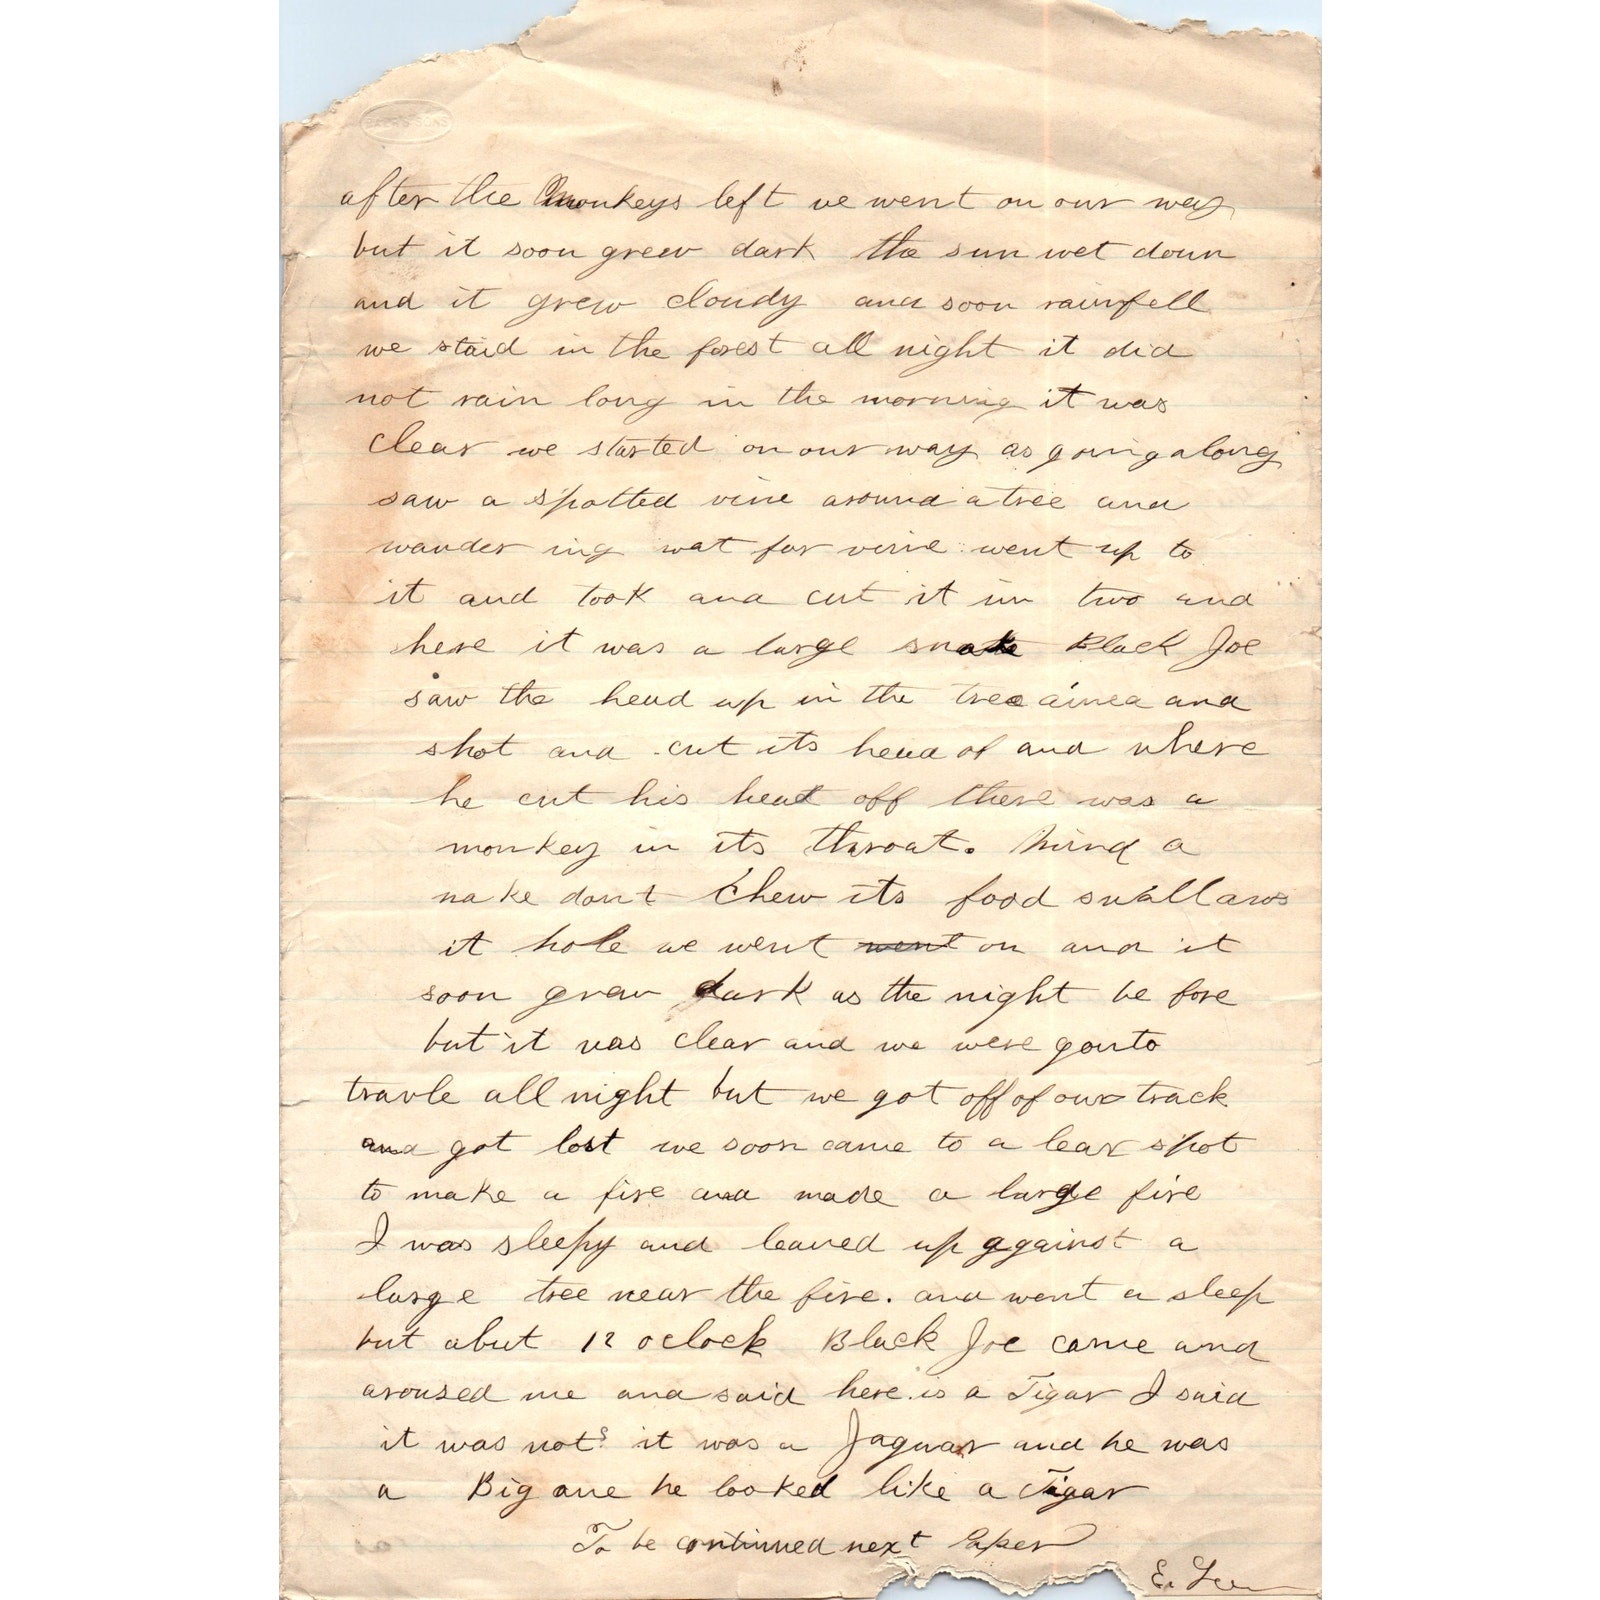 after the monkeys left we went on our way
but it soon grew dark the sun wet doun
and it grew cloudy and soon rain fell
we staid in the forest all night it did
not rain long in the morning it was
clear we started on our way as going along
saw a spotted vine around a tree and
wander ing wat for vine went up to
it and took and cut it in two and
here it was a large snake Black Joe
saw the head up in the tree aimea and
shot and cut its head of and where
he cut his head off there was a
monkey in its throat. Mind a
nake dont chew its food swallaws
it hole we went went on and it
soon grew dark as the night be fore
but it was clear and we were gonto
travle all night but we got off of our track
and got lost we soon came to a lear spot
to make a fire and made a large fire
I was sleepy and leaned up against a
large tree near the fire. and went a sleep
but abut 12 o clock Black Joe came and
arouzed me and said here is a Tigar I said
it was not it was a Jaguar and he was
a Big one he looked like a Tigar
To be continued next Paper
E.